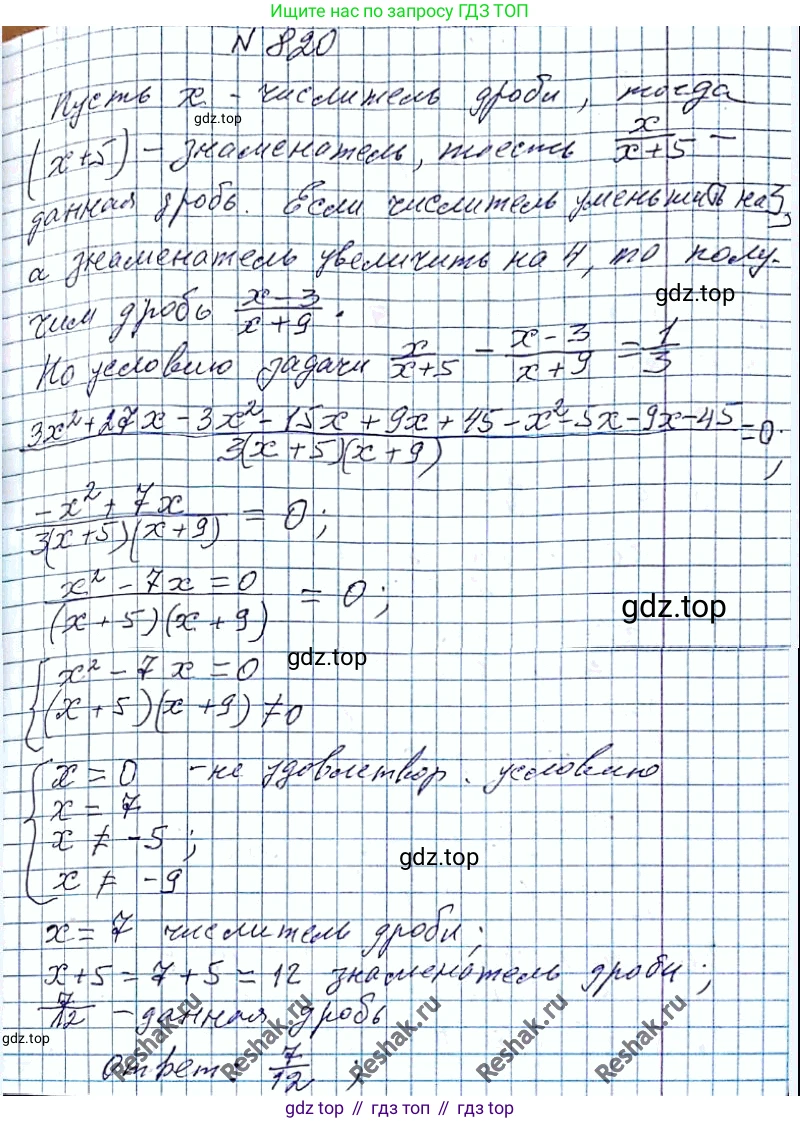 Ищите нас по запросу ГДЗ ТОП
N 820
Пусть x - числитель дроби, тогда
gdz.top
(x+5) - знаменатель, тоесть x/(x+5) -
данная дробь. Если числитель уменьшить на 3,
а знаменатель увеличить на 4, то полу-
gdz.top
чим дробь (x-3)/(x+9).
По условию задачи x/(x+5) - (x-3)/(x+9) = 1/3
(3x²+27x-3x²-15x+9x+45-x²-5x-9x-45)/(3(x+5)(x+9)) = 0;
(-x²+7x)/(3(x+5)(x+9)) = 0;
(x²-7x=0)/((x+5)(x+9)) = 0;
gdz.top
gdz.top
{ x²-7x=0
(x+5)(x+9)≠0
{ x=0 - не удовлетвор. условию
x=7
x≠-5;
gdz.top
x≠-9
x=7 числитель дроби;
x+5=7+5=12 знаменатель дроби;
7/12 - данная дробь
gdz.top
ответ: 7/12;
Reshak.ru
Reshak.ru
Reshak.ru
Reshak.ru
Reshak.ru
gdz top // гдз топ // gdz.top